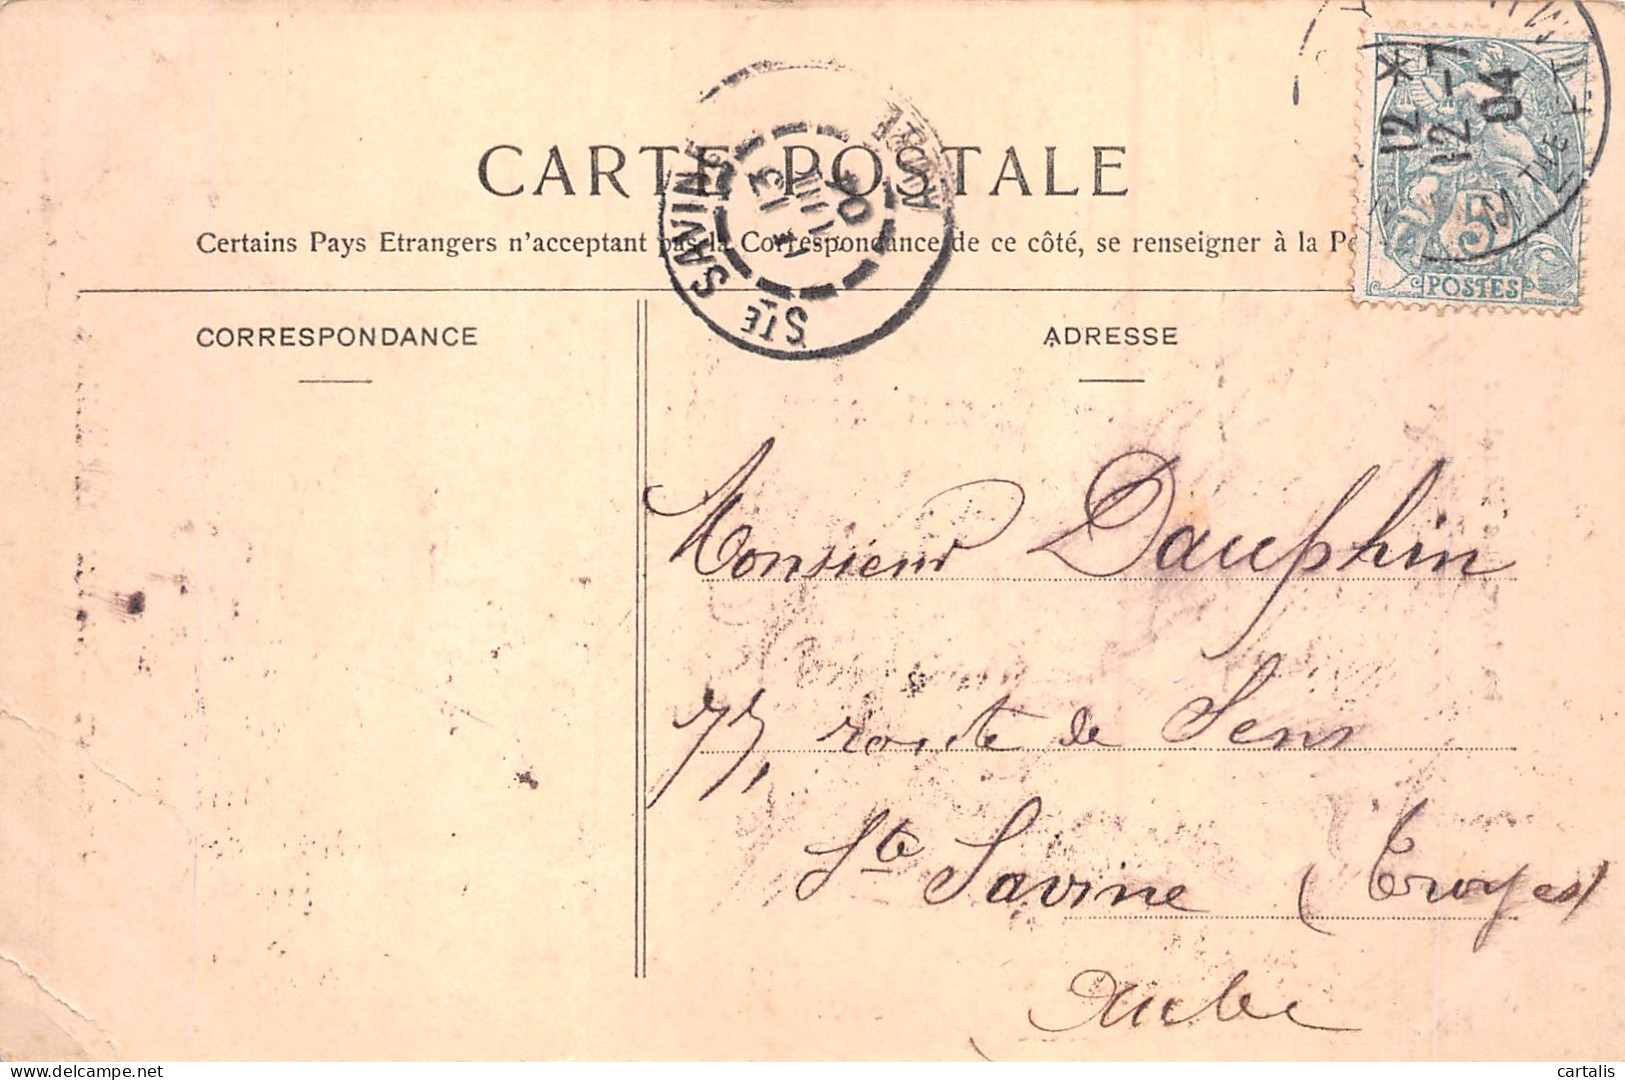 CARTE POSTALE
Certains Pays Etrangers n'acceptant pas la Correspondance de ce côté, se renseigner à la
CORRESPONDANCE
ADRESSE
STE SAVINE
AUBE
13
04
12 *
12 - 7
04
5
POSTES
Monsieur Dauphin
75, route de Sens
Ste Savine (Troyes)
Aube
delcampe.net
cartalis